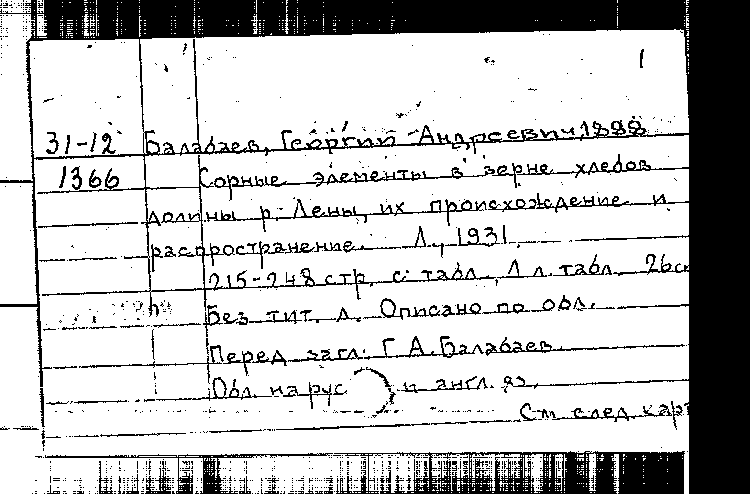 1
31-12 Балабаев, Георгий Андреевич, 1898
1366 Сорные элементы в зерне хлебов
долины р. Лены, их происхождение и
распространение. Л., 1931.
215-248 стр. с табл., 1 л. табл. 26с
Без тит. л. Описано по обл.
Перед загл.: Г. А. Балабаев.
Обл. на рус и англ. яз.
См. след. карт